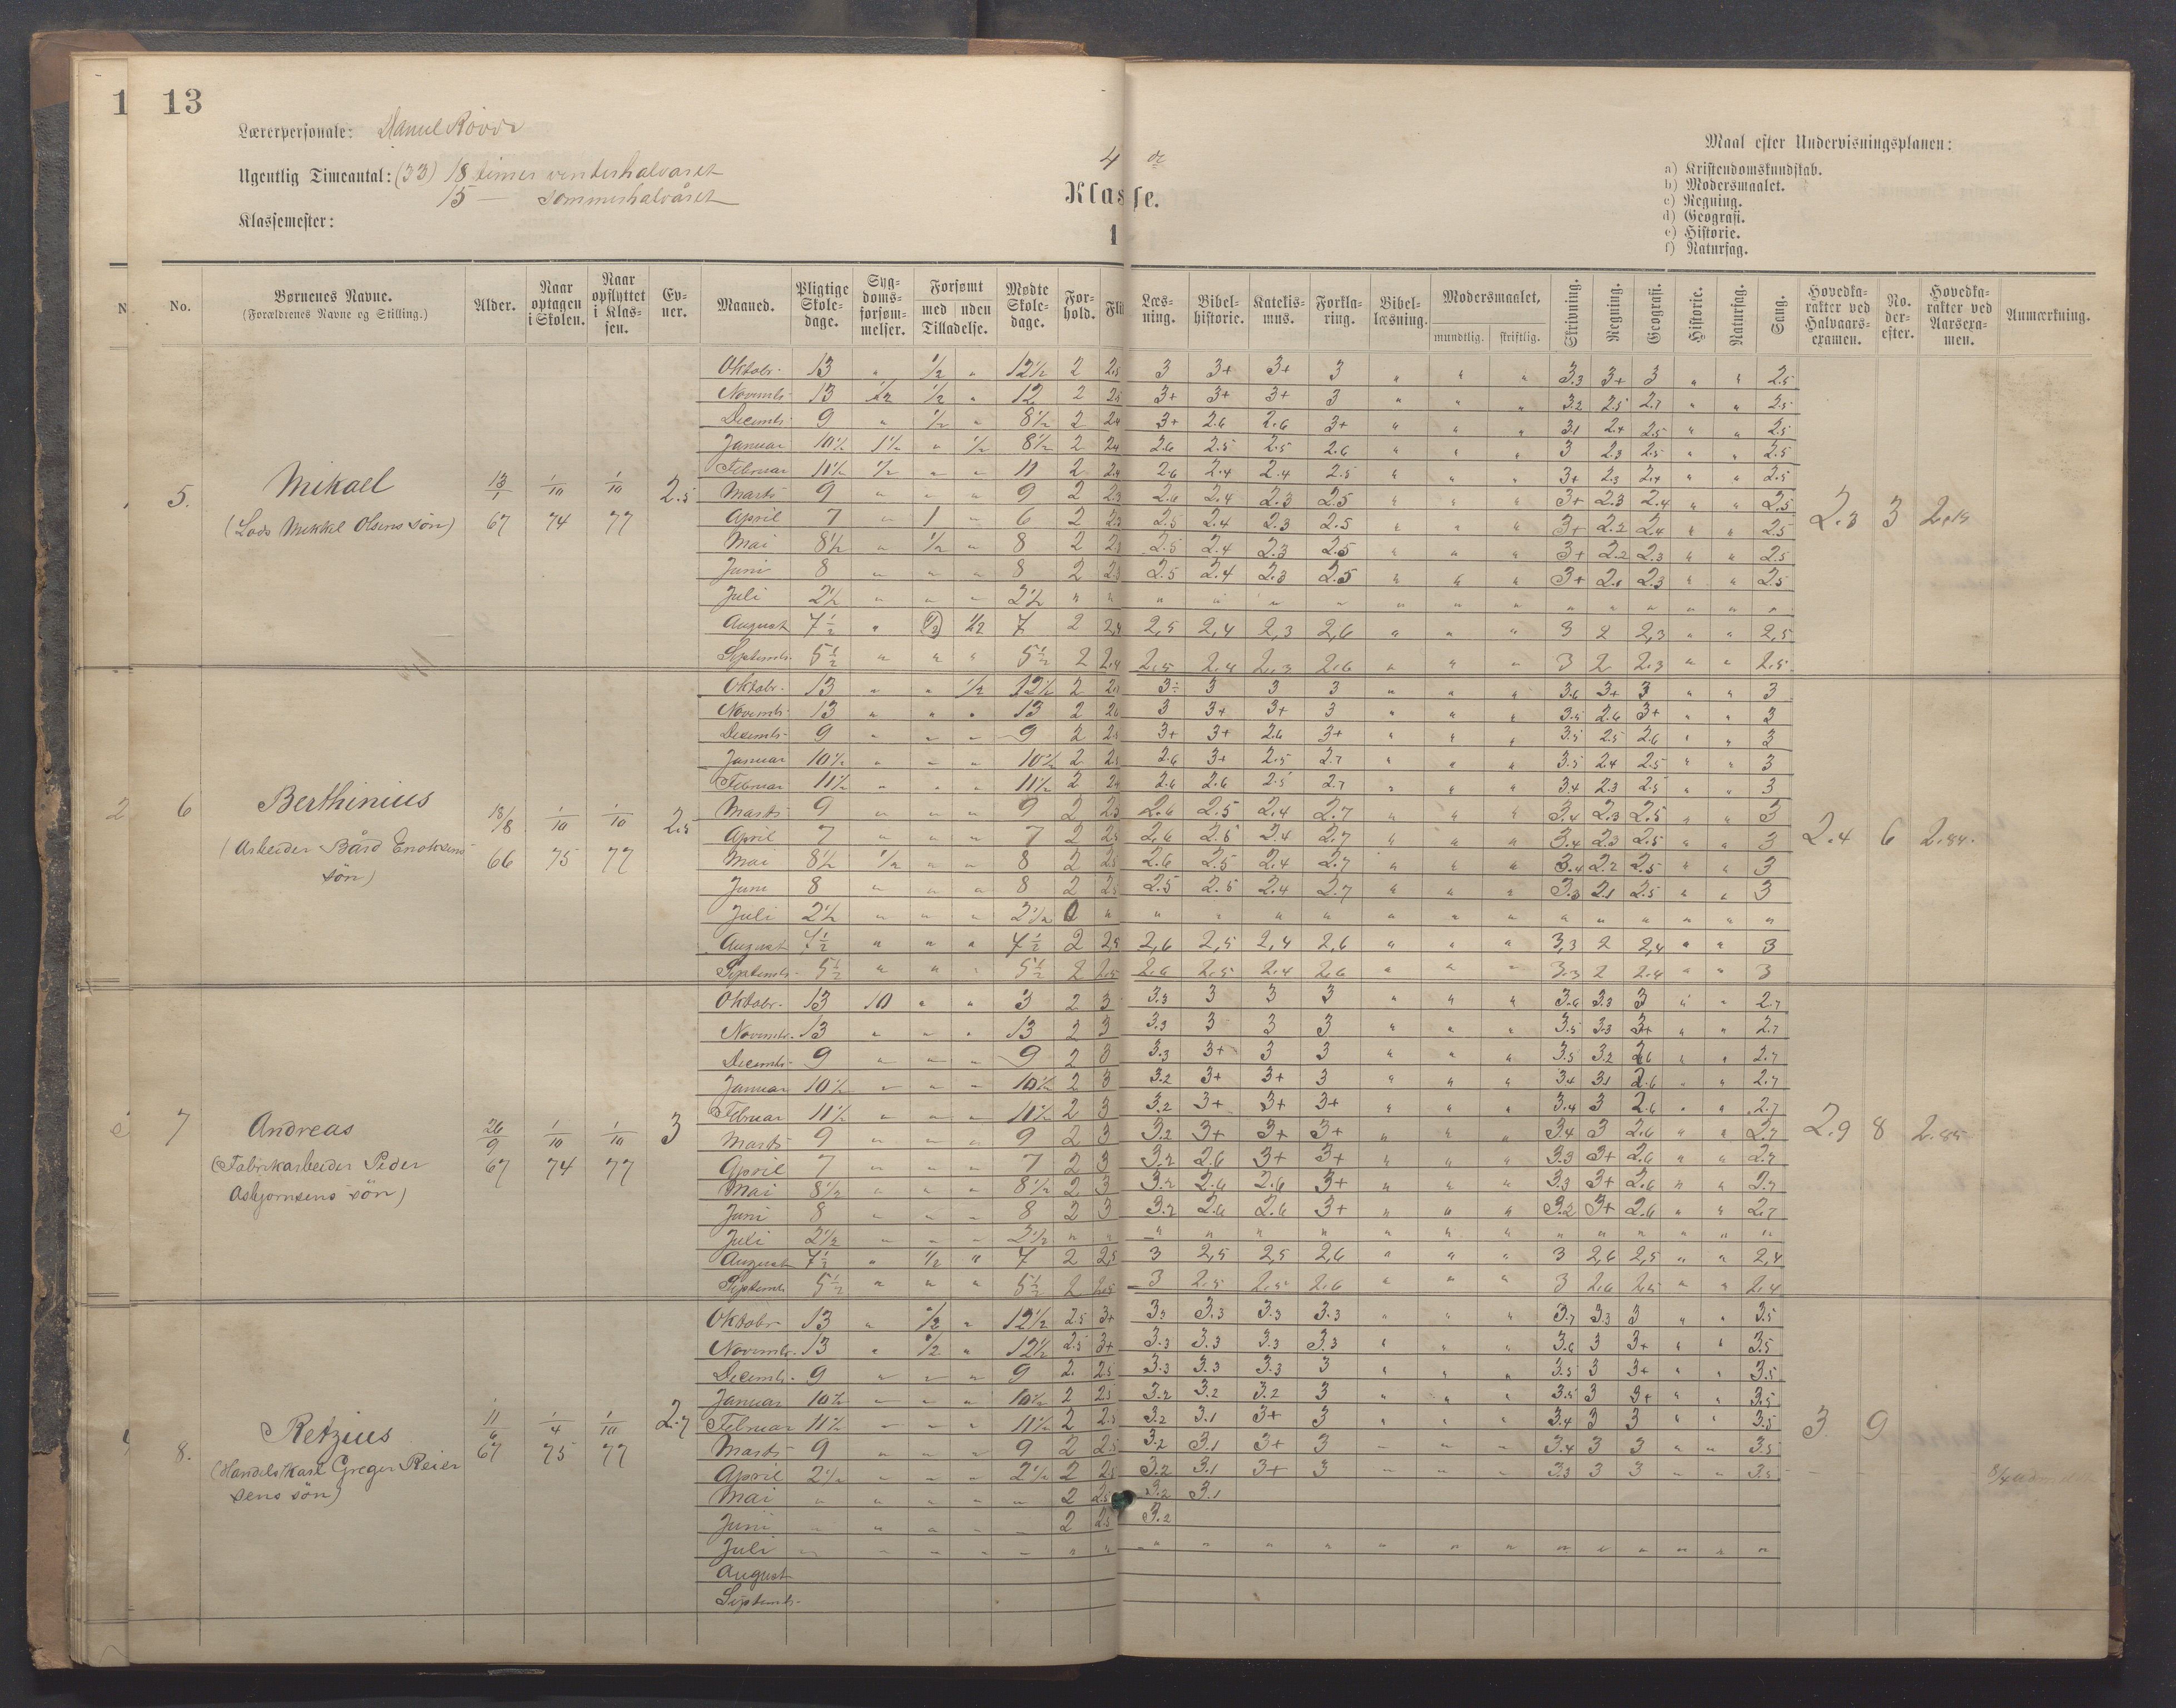 13
Lærerpersonale: Daniel Rövde
Ugentlig Timeantal: (33) 18 timer vinterhalvaret
15 — sommerhalvåret
Klassemester:
4 de
Klasse.
Maal efter Undervisningsplanen:
a) Kristendomskundskab.
b) Modersmaalet.
c) Regning.
d) Geografi.
e) Historie.
f) Naturfag.
No. Børnenes Navne. (Forældrenes Navne og Stilling.) Alder. Naar optagen i Skolen. Naar opflyttet i Klassen. Evner. Maaned. Pligtige Skoledage. Sygdomsforsømmelser. Forsømt med uden Tilladelse. Mødte Skoledage. Forhold. Fli Læsning. Bibelhistorie. Katekismus. Forklaring. Bibellæsning. Modersmaalet, mundtlig. skriftlig. Skrivning. Regning. Geografi. Historie. Naturfag. Sang. Hovedkarakter ved Halvaarsexamen. No. derefter. Hovedkarakter ved Aarsexamen. Anmærkning.
5. Mikael
(Lods Mikkel Olsens sön)
13/1 67 1/10 74 1/10 77 2.5
Oktobr. 13 " 1/2 " 12 1/2 2 2.5 3 3+ 3+ 3 " " " 3.3 3+ 3 " " 2.5
Novembr. 13 1/2 1/2 " 12 2 2.5 3+ 3+ 3+ 3 " " " 3.2 2.5 2.7 " " 2.5
Decembr. 9 " 1/2 " 8 1/2 2 2.4 3+ 2.6 2.6 3+ " " " 3.1 2.4 2.5 " " 2.5
Januar 10 1/2 1 1/2 " 1/2 8 1/2 2 2.4 2.6 2.5 2.5 2.6 " " " 3 2.3 2.5 " " 2.5
Februar 11 1/2 1/2 " " 11 2 2.4 2.6 2.4 2.4 2.5 " " " 3+ 2.3 2.4 " " 2.5
Marts 9 " " " 9 2 2.3 2.6 2.4 2.3 2.5 " " " 3+ 2.3 2.4 " " 2.5
April 7 " 1 " 6 2 2.3 2.5 2.4 2.3 2.5 " " " 3+ 2.2 2.4 " " 2.5
Mai 8 1/2 " 1/2 " 8 2 2.3 2.5 2.4 2.3 2.5 " " " 3+ 2.2 2.3 " " 2.5
Juni 8 " " " 8 2 2.3 2.5 2.4 2.3 2.5 " " " 3+ 2.1 2.3 " " 2.5
Juli 2 1/2 " " " 2 1/2 " " " " " " " " " " " " " " "
August 7 1/2 " (1/2) 1/2 7 2 2,4 2,5 2,4 2,3 2,6 " " " 3 2 2,3 " " 2,5
Septembr. 5 1/2 " " " 5 1/2 2 2.4 2.5 2.4 2.3 2.6 " " " 3 2 2.3 " " 2.5
2.3 3
6 Berthinius
(Arbeider Bård Enoksens
sön)
18/8 66 1/10 75 1/10 77 2.5
Oktobr. 13 " " 1/2 12 1/2 2 3÷ 3 3 3 " " " 3.6 3+ 3 " " 3
Novembr. 13 " " " 13 2 2.6 3 3+ 3+ 3 " " " 3.5 2.6 3+ " " 3
Decembr. 9 " " " 9 2 2.5 3+ 3+ 2.6 3+ " " " 3.5 2.5 2.6 " " 3
Januar 10 1/2 " " " 10 1/2 2 2.5 2.6 3+ 2.5 2.7 " " " 3.5 2.4 2.5 " " 3
Februar 11 1/2 " " " 11 1/2 2 2.4 2.6 2.6 2.5 2.7 " " " 3.4 2.3 2.5 " " 3
Marts 9 " " " 9 2 2.5 2.6 2.5 2.4 2.7 " " " 3.4 2.3 2.5 " " 3
April 7 " " " 7 2 2.5 2.6 2.5 2.4 2.7 " " " 3.4 2.3 2.5 " " 3
Mai 8 1/2 1/2 " " 8 2 2.5 2.6 2.5 2.4 2.7 " " " 3.4 2.2 2.5 " " 3
Juni 8 " " " 8 2 2.5 2.5 2.5 2.4 2.7 " " " 3.3 2.1 2.5 " " 3
Juli 2 1/2 " " " 2 1/2 0 " " " " " " " " " " " " " "
August 7 1/2 " " " 7 1/2 2 2,5 2,6 2,5 2,4 2,6 " " " 3,3 2 2,4 " " 3
Septembr. 5 1/2 " " " 5 1/2 2 2.5 2.6 2.5 2.4 2.6 " " " 3.3 2 2.4 " " 3
2.4 6 2.44.
7 Andreas
(Fabrikarbeider Peder
Asbjørnsens sön)
26/9 67 1/10 74 1/10 77 3
Oktobr. 13 10 " " 3 2 3 3.3 3 3 3 " " " 3.6 3.3 3 " " 2.7
Novembr. 13 " " " 13 2 3 3.3 3 3 3 " " " 3.5 3.3 3+ " " 2.7
Decembr. 9 " " " 9 2 3 3.3 3+ 3 3 " " " 3.5 3.2 2.6 " " 2.7
Januar 10 1/2 " " " 10 1/2 2 3 3.2 3+ 3+ 3 " " " 3.4 3.1 2.6 " " 2.7
Februar 11 1/2 " " " 11 1/2 2 3 3.2 3+ 3+ 3+ " " " 3.4 3 2.6 " " 2.7
Marts 9 " " " 9 2 3 3.2 3+ 3+ 3+ " " " 3.4 3 2.6 " " 2.7
April 7 " " " 7 2 3 3.2 2.6 3+ 3+ " " " 3.3 3+ 2.6 " " 2.7
Mai 8 1/2 " " " 8 1/2 2 3 3.2 2.6 2.6 3+ " " " 3.3 3+ 2.6 " " 2.7
Juni 8 " " " 8 2 3 3.2 2.6 2.6 3+ " " " 3.2 3+ 2.6 " " 2.7
Juli 2 1/2 " " " 2 1/2 " " " " " " " " " " " " " " "
August 7 1/2 " 1/2 " 7 2 2,5 3 2,5 2,5 2,6 " " " 3 2,6 2,5 " " 2,4
Septembr. 5 1/2 " " " 5 1/2 2 2.5 3 2.5 2.5 2.6 " " " 3 2.6 2.5 " " 2.4
2.9 8 2.85
8. Retzius
(Handelskarl Greger Reier
sens sön)
11/6 67 1/4 75 1/10 77 2.7
Oktobr 13 " 1/2 " 12 1/2 2.5 3+ 3.3 3.3 3.3 3.3 " " " 3.7 3.3 3 " " 3.5
Novembr. 13 " 1/2 " 12 1/2 2.5 3+ 3.3 3.3 3.3 3.3 " " " 3.6 3 3+ " " 3.5
Decembr. 9 " " " 9 2. 2.5 3.3 3.3 3.3 3 " " " 3.5 3 3+ " " 3.5
Januar 10 1/2 " " " 10 1/2 2 2.5 3.2 3.2 3.2 3 " " " 3.5 3 3+ " " 3.5
Februar 11 1/2 " " " 11 1/2 2 2.5 3.2 3.1 3+ 3 " " " 3.4 3 3 " " 3.5
Marts 9 " " " 9 2 2.5 3.2 3.1 3+ 3 " " " 3.4 3 3 " " 3.5
April 2 1/2 " " " 2 1/2 2 2.5 3.2 3.1 3+ 3 " " " 3.3 3 3 " " 3.5
Mai " " " " " 2 2.5 3.2 3.1
Juni " " " " " 2 2.5 3.2
Juli " " " " " " " " " " " " " " " " " " " "
August
Septembr.
3. 9